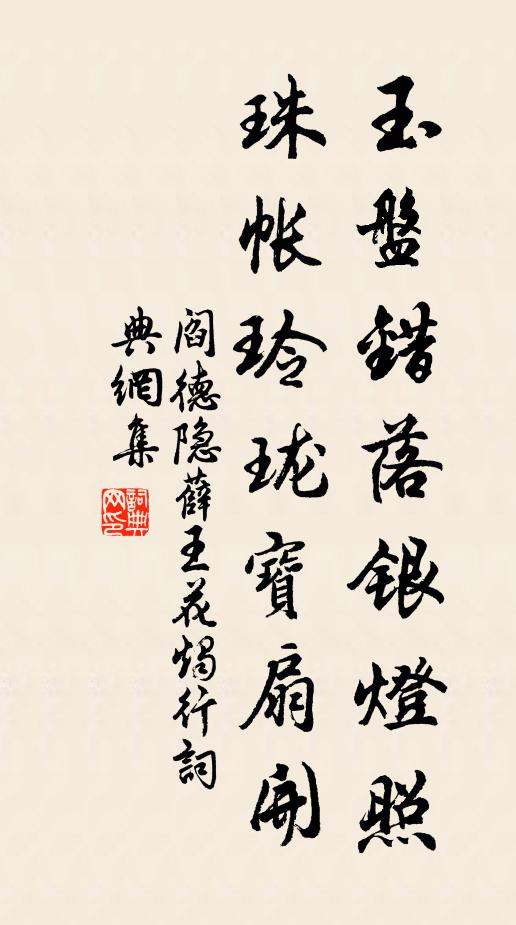 玉盤錯落銀燈照
珠帳玲珑寶扇開
阎德隐薛王花燭行詞
典網集
詞典网印